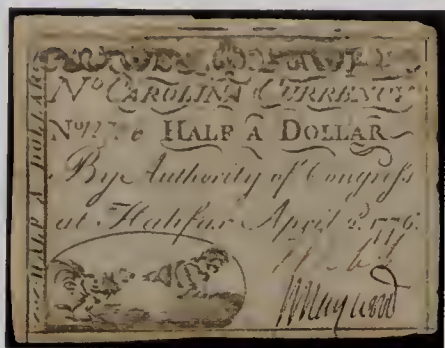 HALF A DOLLAR
No CAROLINA CURRENCY
No HALF A DOLLAR
By Authority of Congress
at Halifax April 2, 1776.